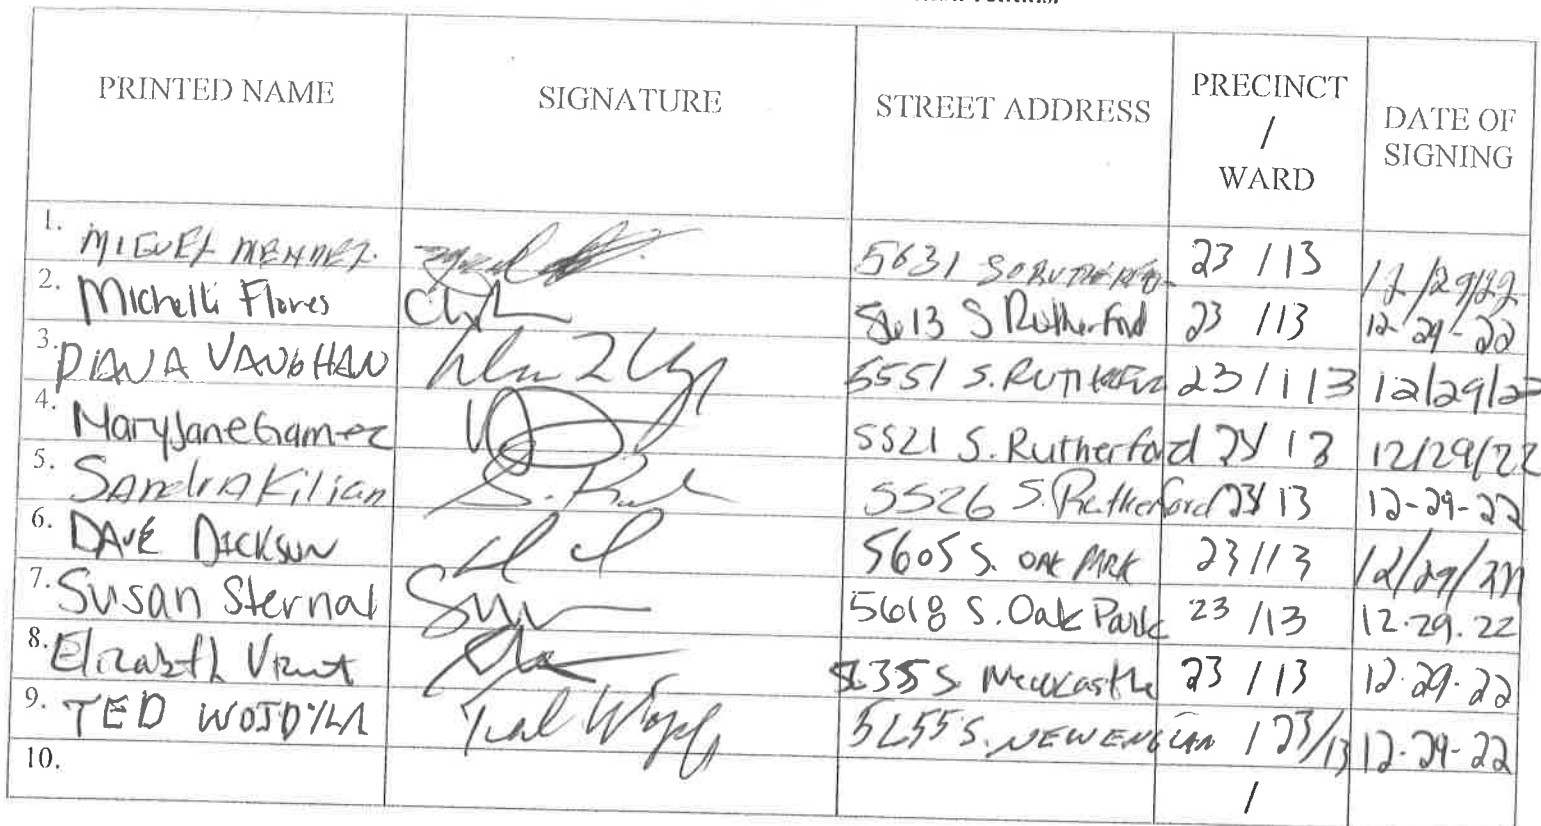 PRINTED NAME SIGNATURE STREET ADDRESS PRECINCT / WARD DATE OF SIGNING
1. MIGUEL MENDEZ. 5631 SO RUTHERFORD 23 / 13 12/29/22
2. Michelli Flores 5613 S Rutherford 23 / 13 12-29-22
3. DIANA VAUGHAN 5551 S. RUTHERFORD 23 / 113 12/29/22
4. MaryJane Gamez 5521 S. Rutherford 23/ 13 12/29/22
5. SANdrA Kilian S. 5526 S. Rutherford 23/ 13 12-29-22
6. DAVE DICKSON 5605 S. OAK PARK 23 / 13 12/29/22
7. Susan Sternal 5618 S. Oak Park 23 / 13 12.29.22
8. Elizabeth 5635 S. Newcastle 23 / 13 12.29.22
9. TED WOJDYLA Ted 5655 S. NEW ENGLAN / 23/13 12-29-22
10. /